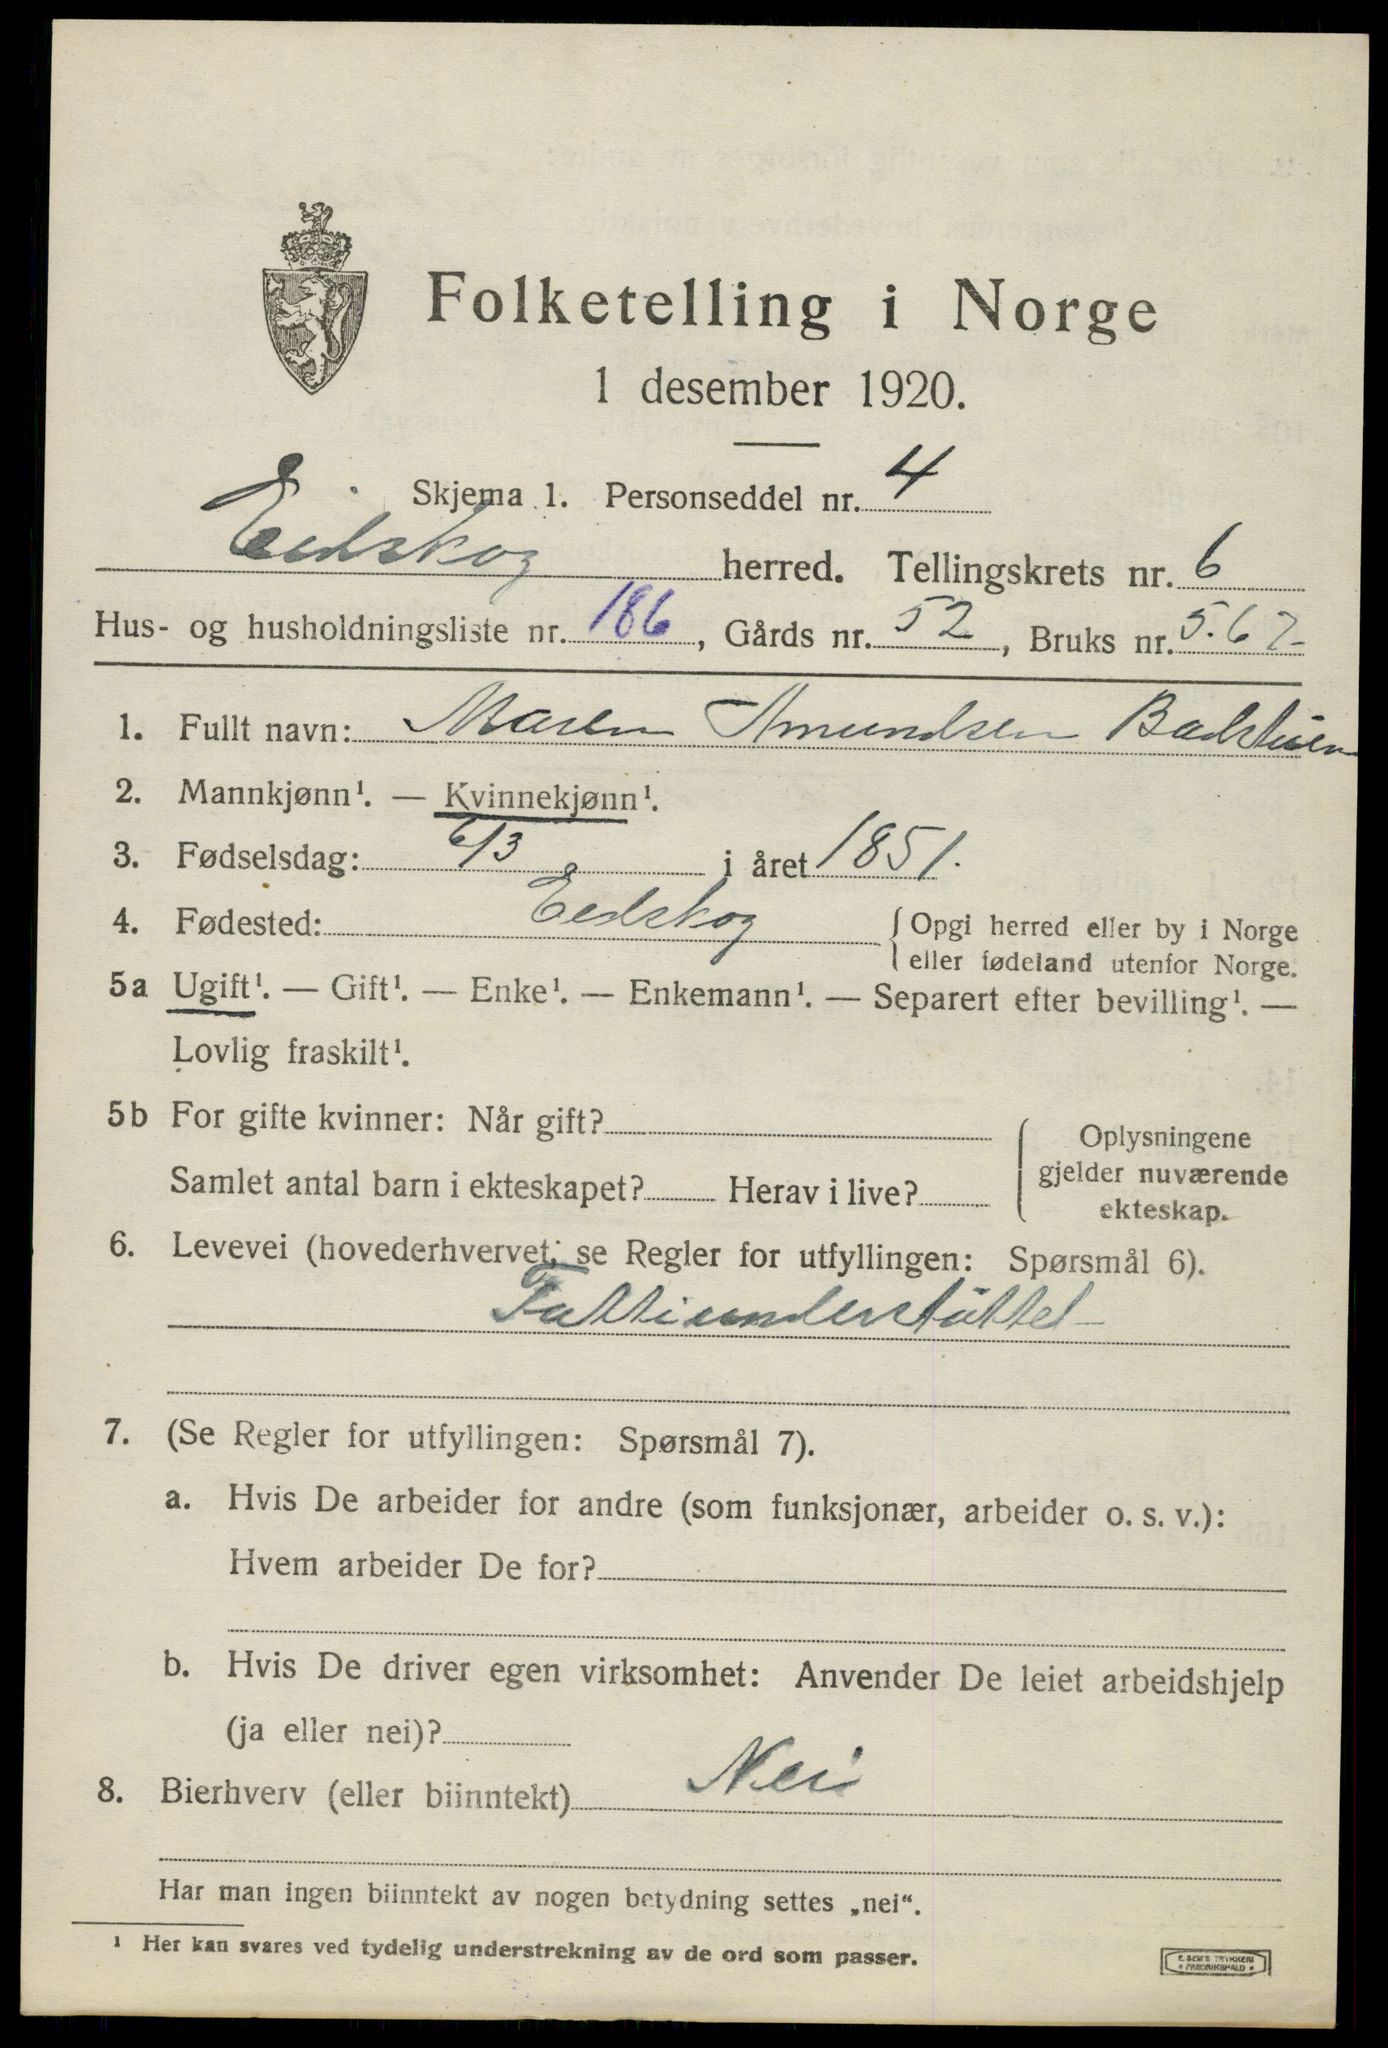 Folketelling i Norge
1 desember 1920.
Skjema 1. Personseddel nr. 4
Eidskog herred. Tellingskrets nr. 6
Hus- og husholdningsliste nr. 186, Gårds nr. 52, Bruks nr. 5.67
1. Fullt navn: Maren Amundsen Badstuen
2. Mannkjønn¹. — Kvinnekjønn¹.
3. Fødselsdag: 6/3 i året 1851.
4. Fødested: Eidskog { Opgi herred eller by i Norge
eller fødeland utenfor Norge.
5a Ugift¹. — Gift¹. — Enke¹. — Enkemann¹. — Separert efter bevilling¹. —
Lovlig fraskilt¹.
5b For gifte kvinner: Når gift?
Samlet antal barn i ekteskapet? Herav i live?
Oplysningene
gjelder nuværende
ekteskap.
6. Levevei (hovederhvervet; se Regler for utfyllingen: Spørsmål 6).
Fattiunderstöttet
7. (Se Regler for utfyllingen: Spørsmål 7).
a. Hvis De arbeider for andre (som funksjonær, arbeider o. s. v.):
Hvem arbeider De for?
b. Hvis De driver egen virksomhet: Anvender De leiet arbeidshjelp
(ja eller nei)?
8. Bierhverv (eller biinntekt) Nei
Har man ingen biinntekt av nogen betydning settes „nei“.
¹ Her kan svares ved tydelig understrekning av de ord som passer.
E. SEM'S TRYKKERI
FREDRIKSHALD